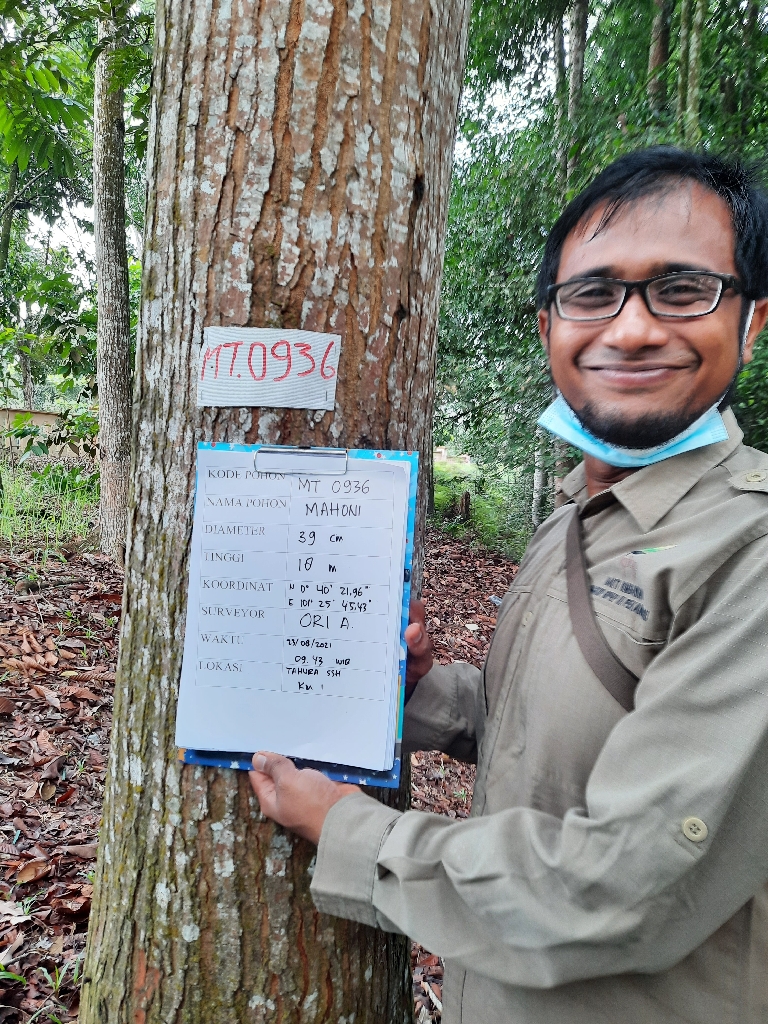 MT.0936
KODE POHON MT 0936
NAMA POHON MAHONI
DIAMETER 39 cm
TINGGI 18 m
KOORDINAT N 0° 40' 21.96"
E 101° 25' 45.43"
SURVEYOR ORI A.
WAKTU 23/08/2021
09.43 WIB
LOKASI TAHURA SSH
Km 1